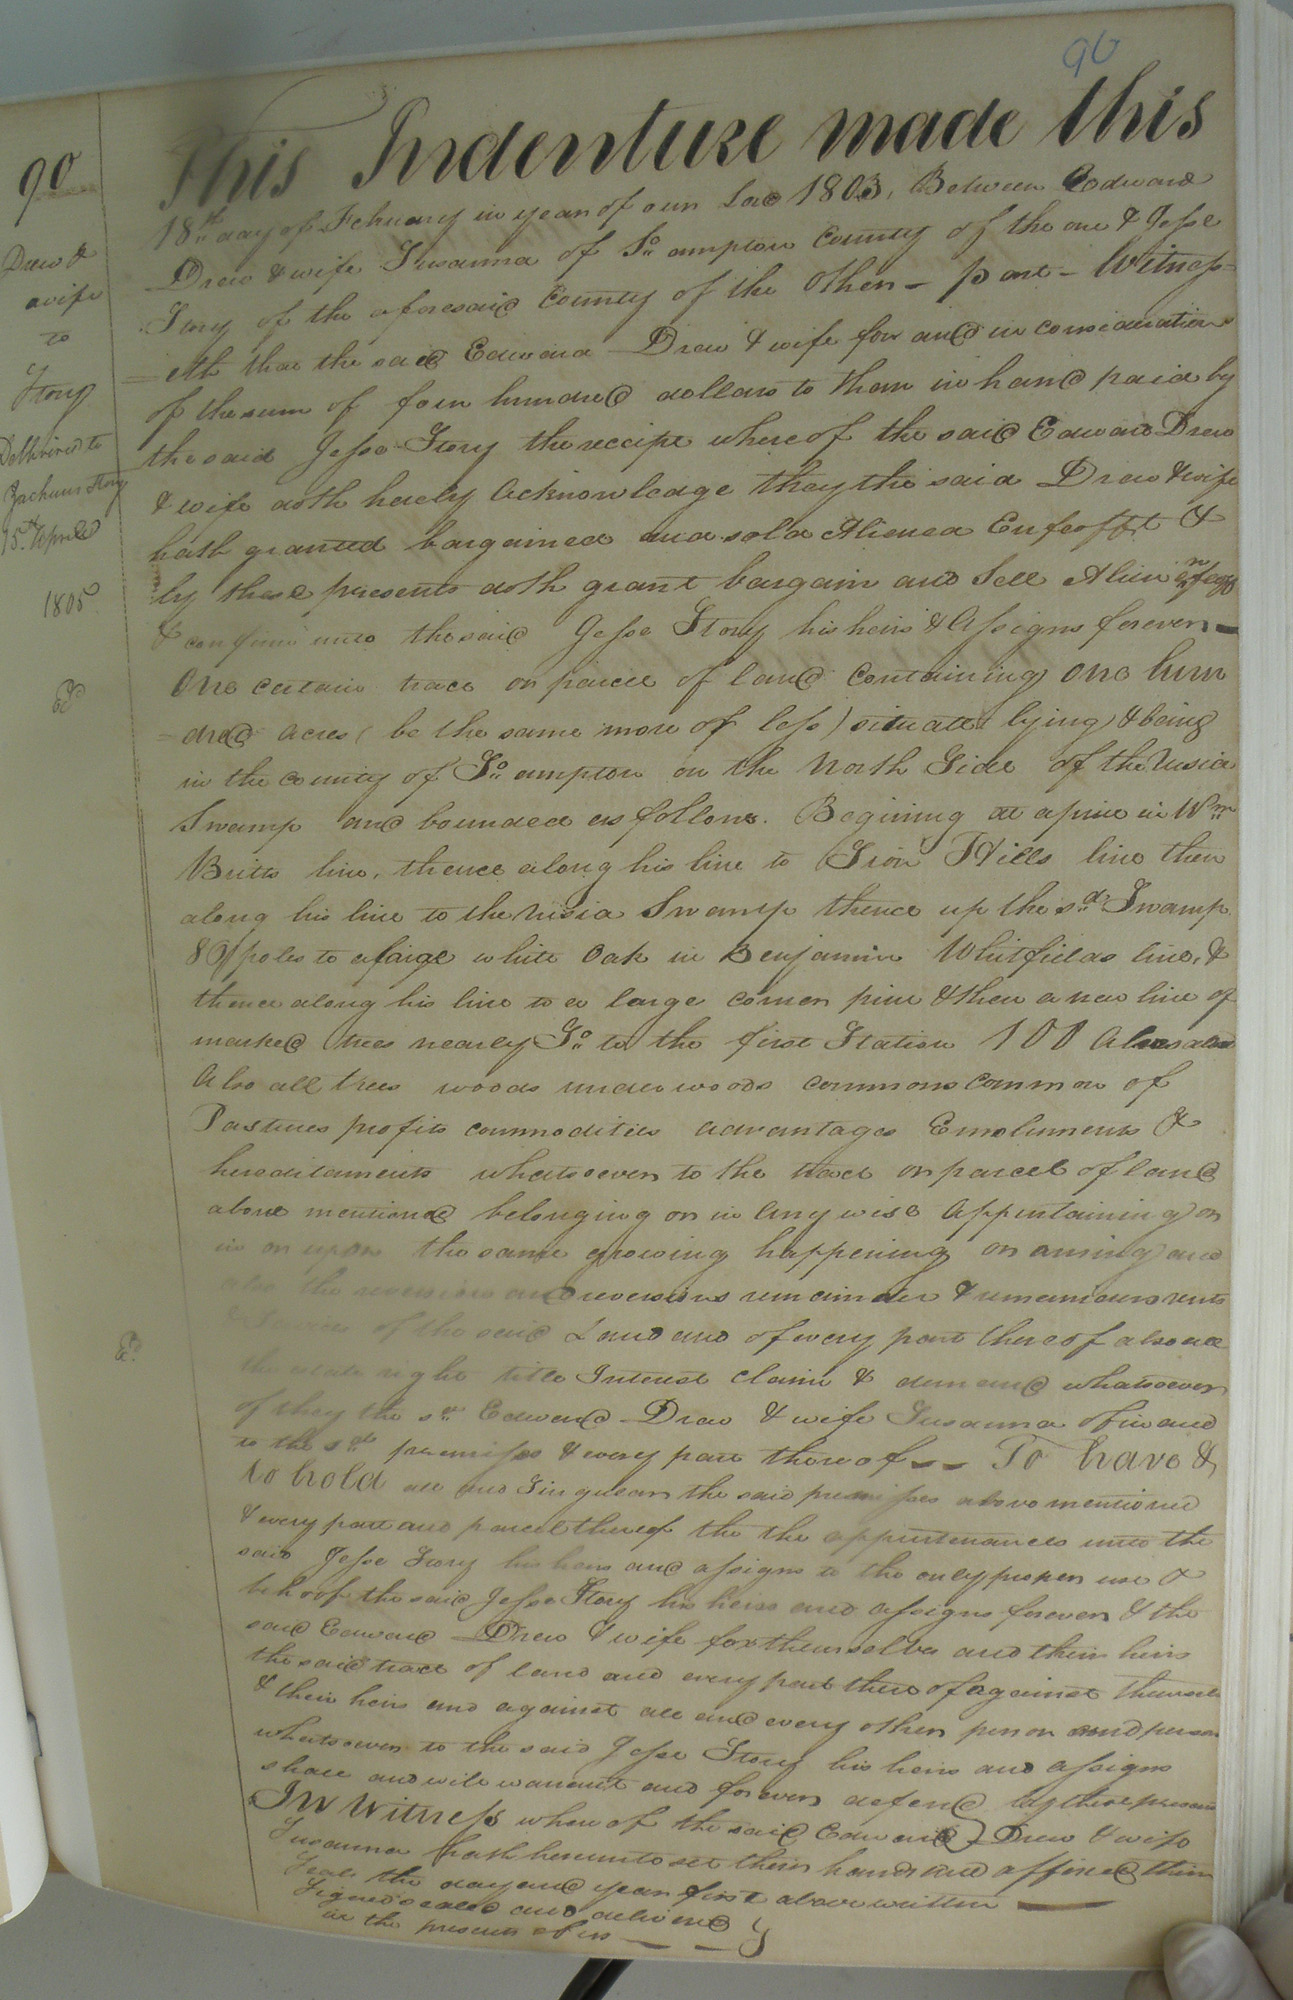 90
90
Drew &
wife
to
Story
Delivered to
Zachum Story
15th April
1805
Ed
Ed
This Indenture made this
18th day of February in year of our Lad 1803, Between Edward
Drew & wife Susanna of So ampton County of the one & Jesse
Story of the aforesaid County of the Other - part - Witness=
=eth that the said Edward Drew & wife for and in consideration
of the sum of four hundred dollars to them in hand paid by
the said Jesse Story the receipt whereof the said Edward Drew
& wife doth hereby Acknowledge they the said Drew & wife
hath granted bargained and sold Aliened Enfeofft &
by these presents doth grant bargain and Sell Alien Enfeoff
& confirm unto the said Jesse Story his heirs & Assigns forever -
One certain tract or parcel of land containing one hun
=dred acres (be the same more of less) situate lying & being
in the county of So ampton on the North Side of the Nusia
Swamp and bounded as follows. Begining at a pine in Wm
Britts line, thence along his line to Sion Hills line then
along his line to the Nusia Swamp thence up the sd Swamp
89 poles to a large white Oak in Benjamin Whitfields line, &
thence along his line to a large corner pine & then a new line of
marked trees nearly So to the first Station 100 Acres and
Also all trees woods underwoods commons common of
Pastures profits commodities advantages Emoluments &
hereditaments whatsoever to the tract or parcel of land
above mentioned belonging or in any wise Appertaining or
in or upon the same growing happening or arising and
also the reversion and reversions remainder & remainders rents
& Services of the said Land and of every part thereof also all
the estate right title Interest claim & demand whatsoever
of they the sd Edward Drew & wife Susanna of in and
to the sd premisses & every part thereof -- To have &
to hold all and Singular the said premisses above mentioned
& every part and parcel thereof the the appurtenances unto the
said Jesse Story his heirs and assigns to the only proper use &
behoof the said Jesse Story his heirs and assigns forever & the
said Edward Drew & wife for themselves and their heirs
the said tract of land and every part there of against themselves
& their heirs and against all and every other person and person
whatsoever to the said Jesse Story his heirs and assigns
shall and will warrant and forever defend by these presents
In Witness whereof the said Edward Drew & wife
Susanna hath hereunto set their hands and affixed their
Seals the day and year first above written
Signed sealed and delivered }
in the presents of us - -